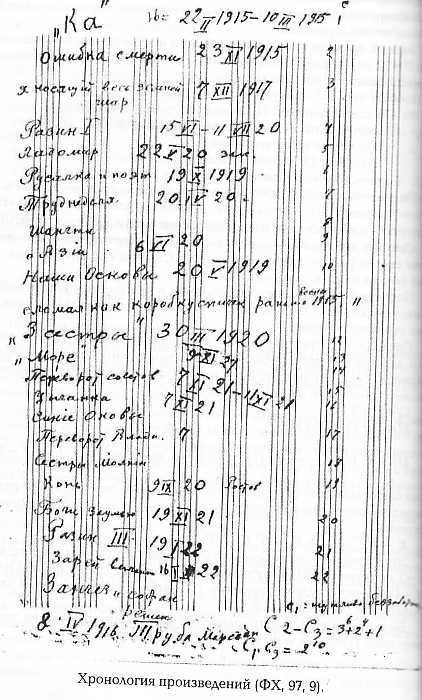 "Ка" 16= 22 II 1915 – 10 III 1915 1
Ошибка смерти 23 XI 1915 2
я носящий весь земной шар 7 XII 1917 3
Разин I 15 VI – 11 VII 20 4
Ладомир 22 V 20 зак. 5
Русалка и поэт 19 X 1919 6
Труднеделя 20 IV 20 7
Шангти 8
о Азiи 6 XI 20 9
Наши Основы 20 V 1919 10
сломал как коробку спичек весна 1915 11
"3 сестры" 30 III 1920 12
"Море" 9 XI 21 13
Переворот советов 7 XI 21 – 11 XI 21 14
Цыганка 7 XI 21 15
Синiе Оковы 16
Переворот Влади. 7 17
Сестры Молнiи 18
Конь 9 IX 20 Ростов 19
Боги заумью 19 XI 21 20
Разин III 19 I 22 21
Зарей 16 I 22 22
Зангези собран
8 IV 1916 решен Труба Марсиан C 2 – C3 = 3⁶+2⁴+1
C1 C3 = 2¹⁰
Хронология произведений (ФХ, 97, 9).